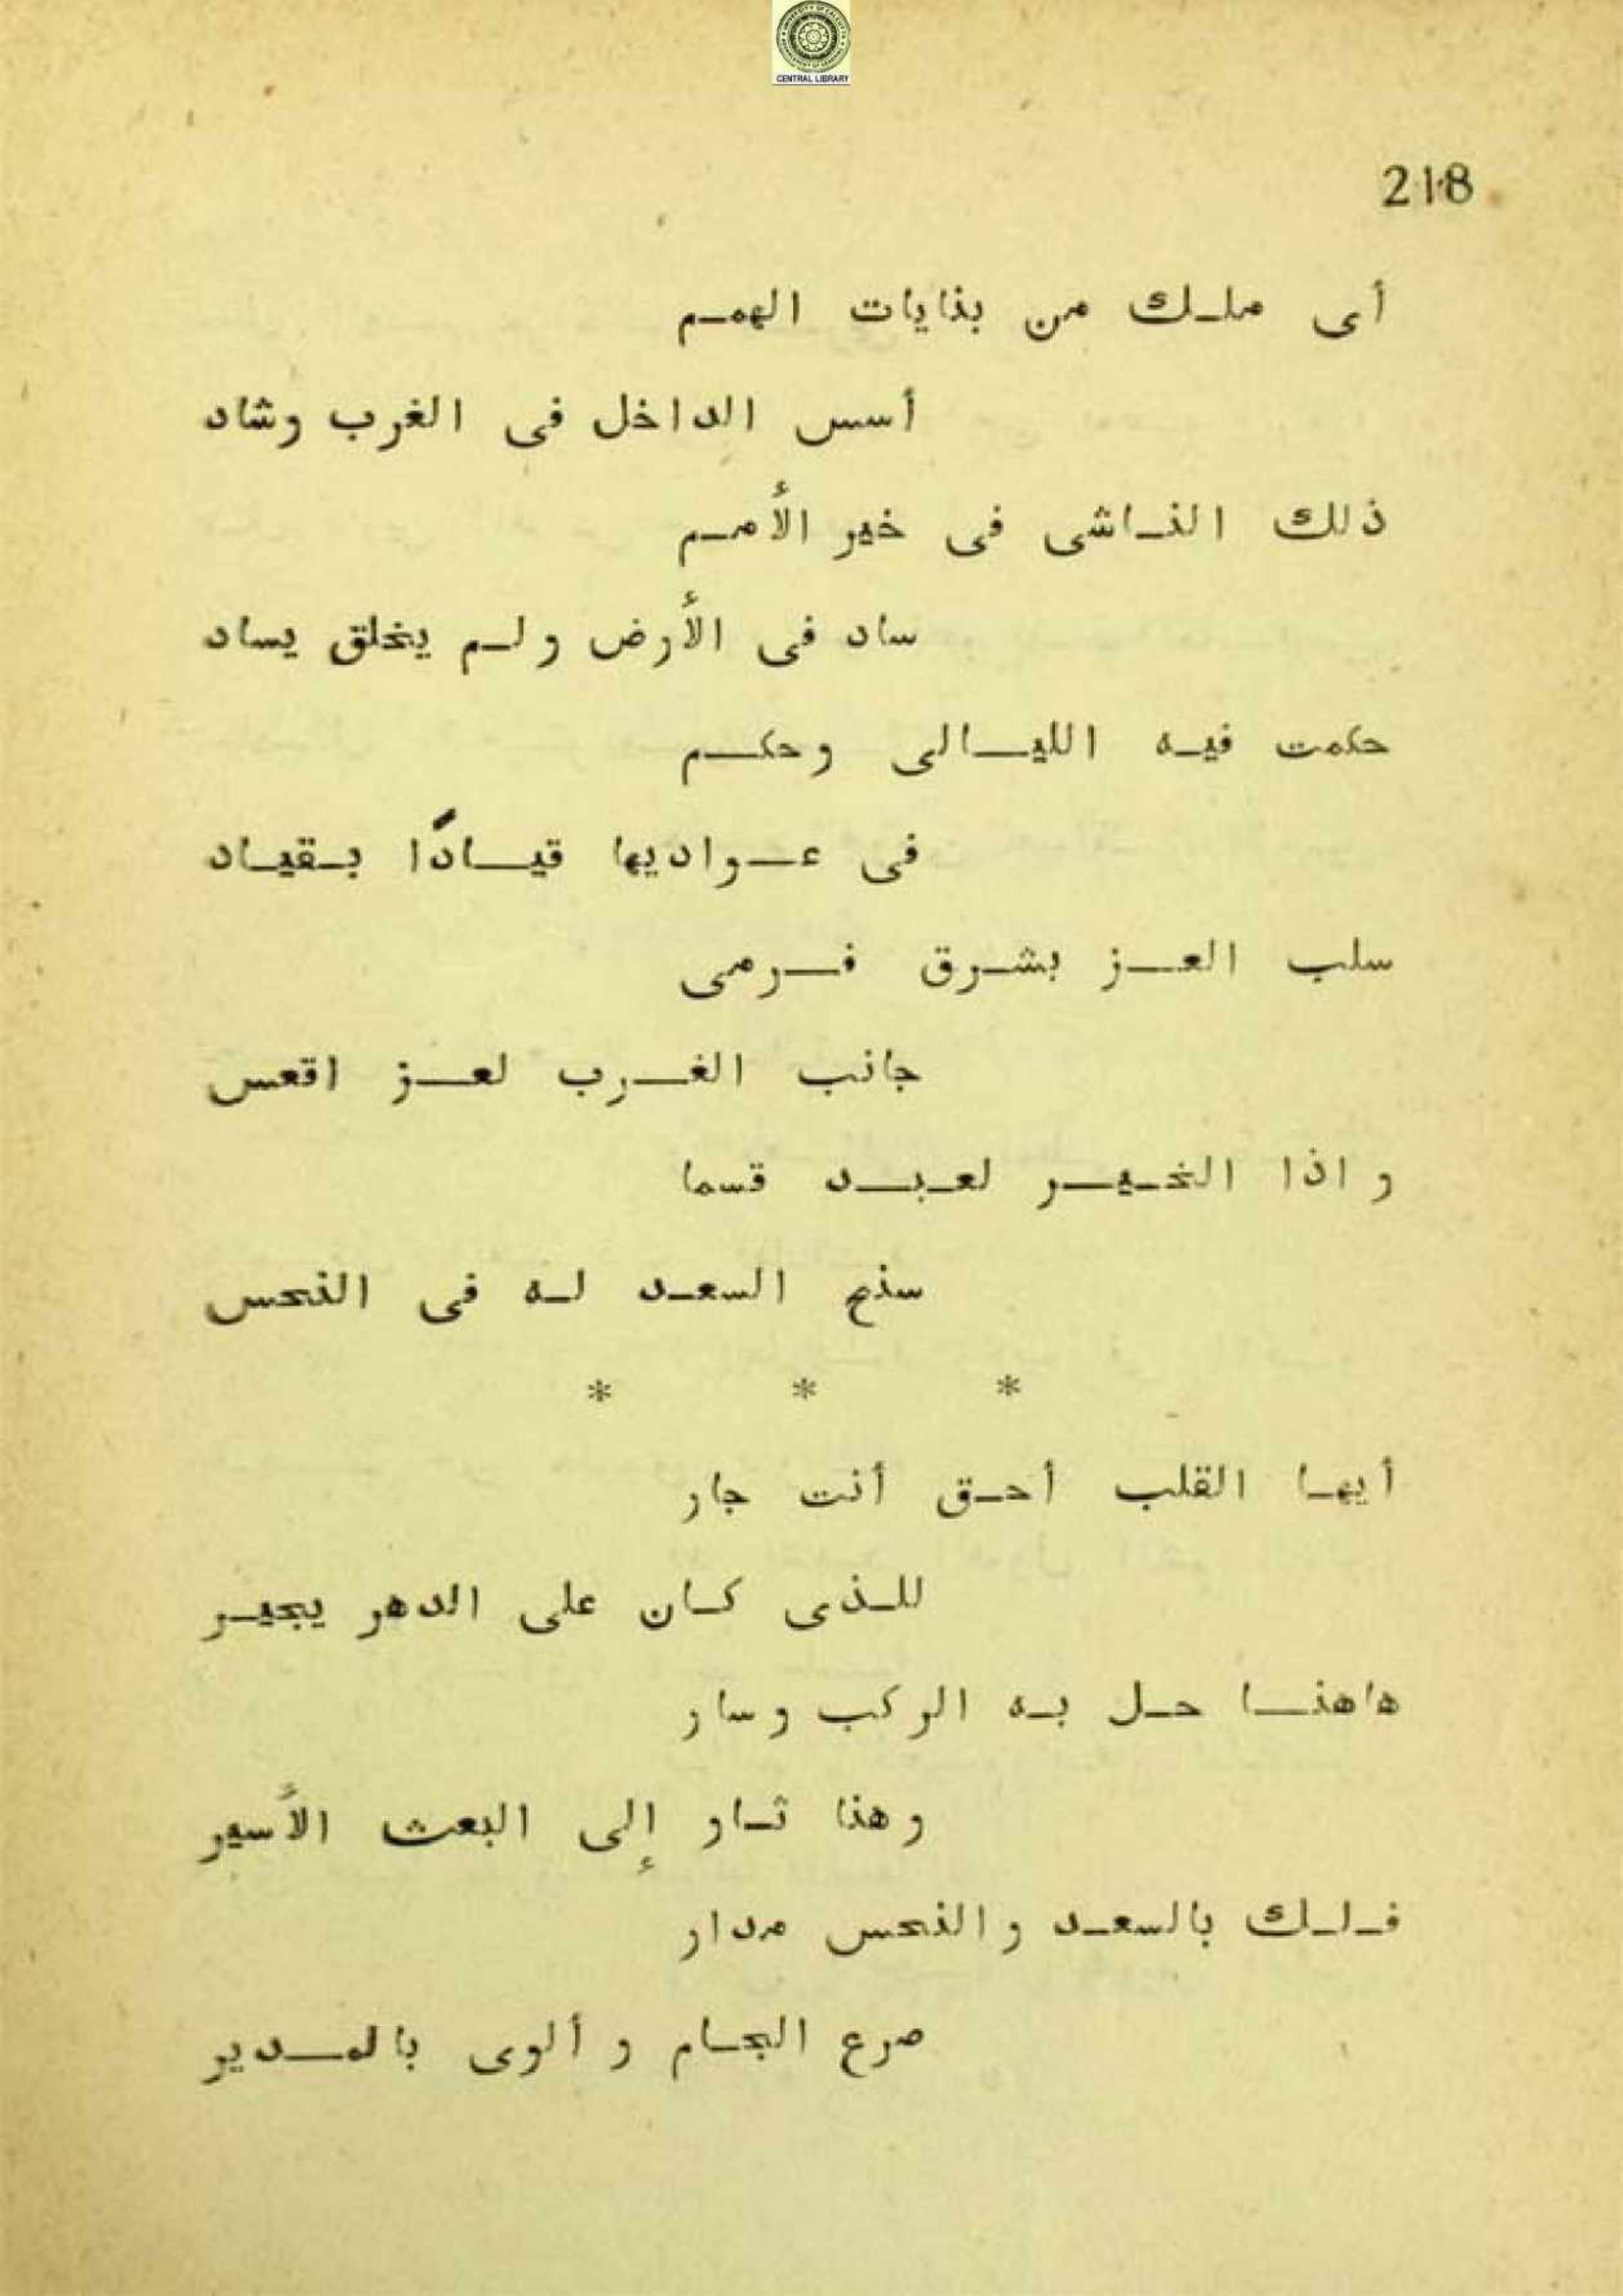 CENTRAL LIBRARY
218
أى ملك من بنايات الهمم
أسس الداخل فى الغرب وشاد
ذلك الناشى فى خير الأمم
ساد فى الأرض ولم يخلق يساد
حكمت فيه الليالى وحكم
فى عواديها قيادًا بقياد
سلب العز بشرق فرمى
جانب الغرب لعز اقعس
واذا الخير لعبد قسما
سنح السعد له فى النحس
* * *
أيها القلب أحق أنت جار
للذى كان على الدهر يجير
هاهنا حل به الركب وسار
وهنا ثاو إلى البعث الأسير
فلك بالسعد والنحس مدار
صرع الجام وألوى بالمدير